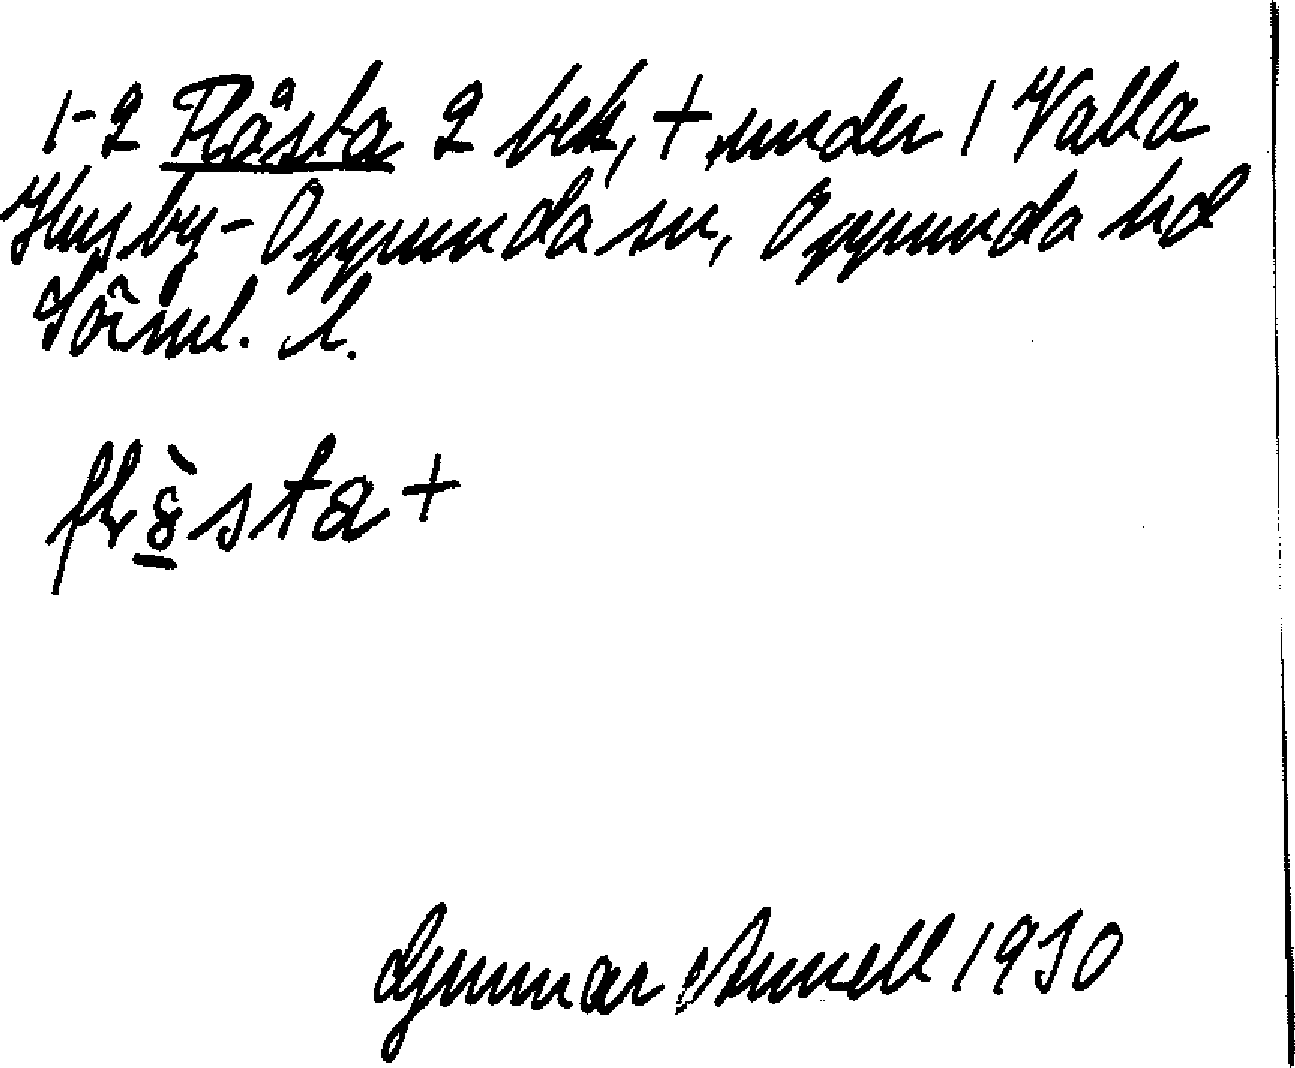 1-2 Flåsta 2 bek, + under 1 Valla
Husby-Oppunda sn, Oppunda hd
Söml. l.
+
Gunnar 1930